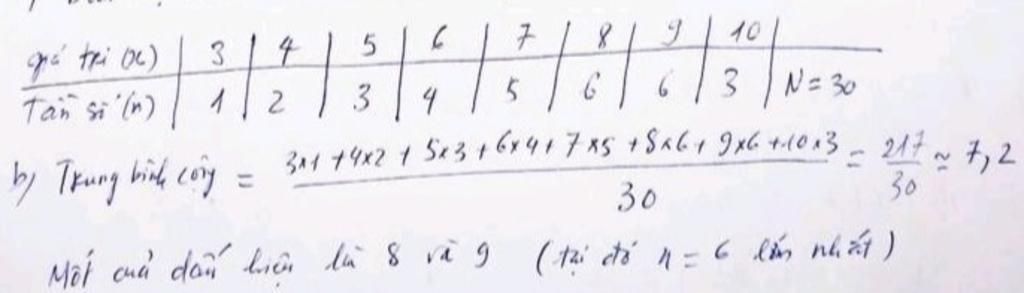 giá trị (x) | 3 | 4 | 5 | 6 | 7 | 8 | 9 | 10 |
Tần số (n) | 1 | 2 | 3 | 4 | 5 | 6 | 6 | 3 | N = 30
b) Trung bình cộng = (3x1 + 4x2 + 5x3 + 6x4 + 7x5 + 8x6 + 9x6 + 10x3) / 30 = 217 / 30 ≃ 7,2
Mốt của dấu hiệu là 8 và 9 (tại đó n = 6 lớn nhất)